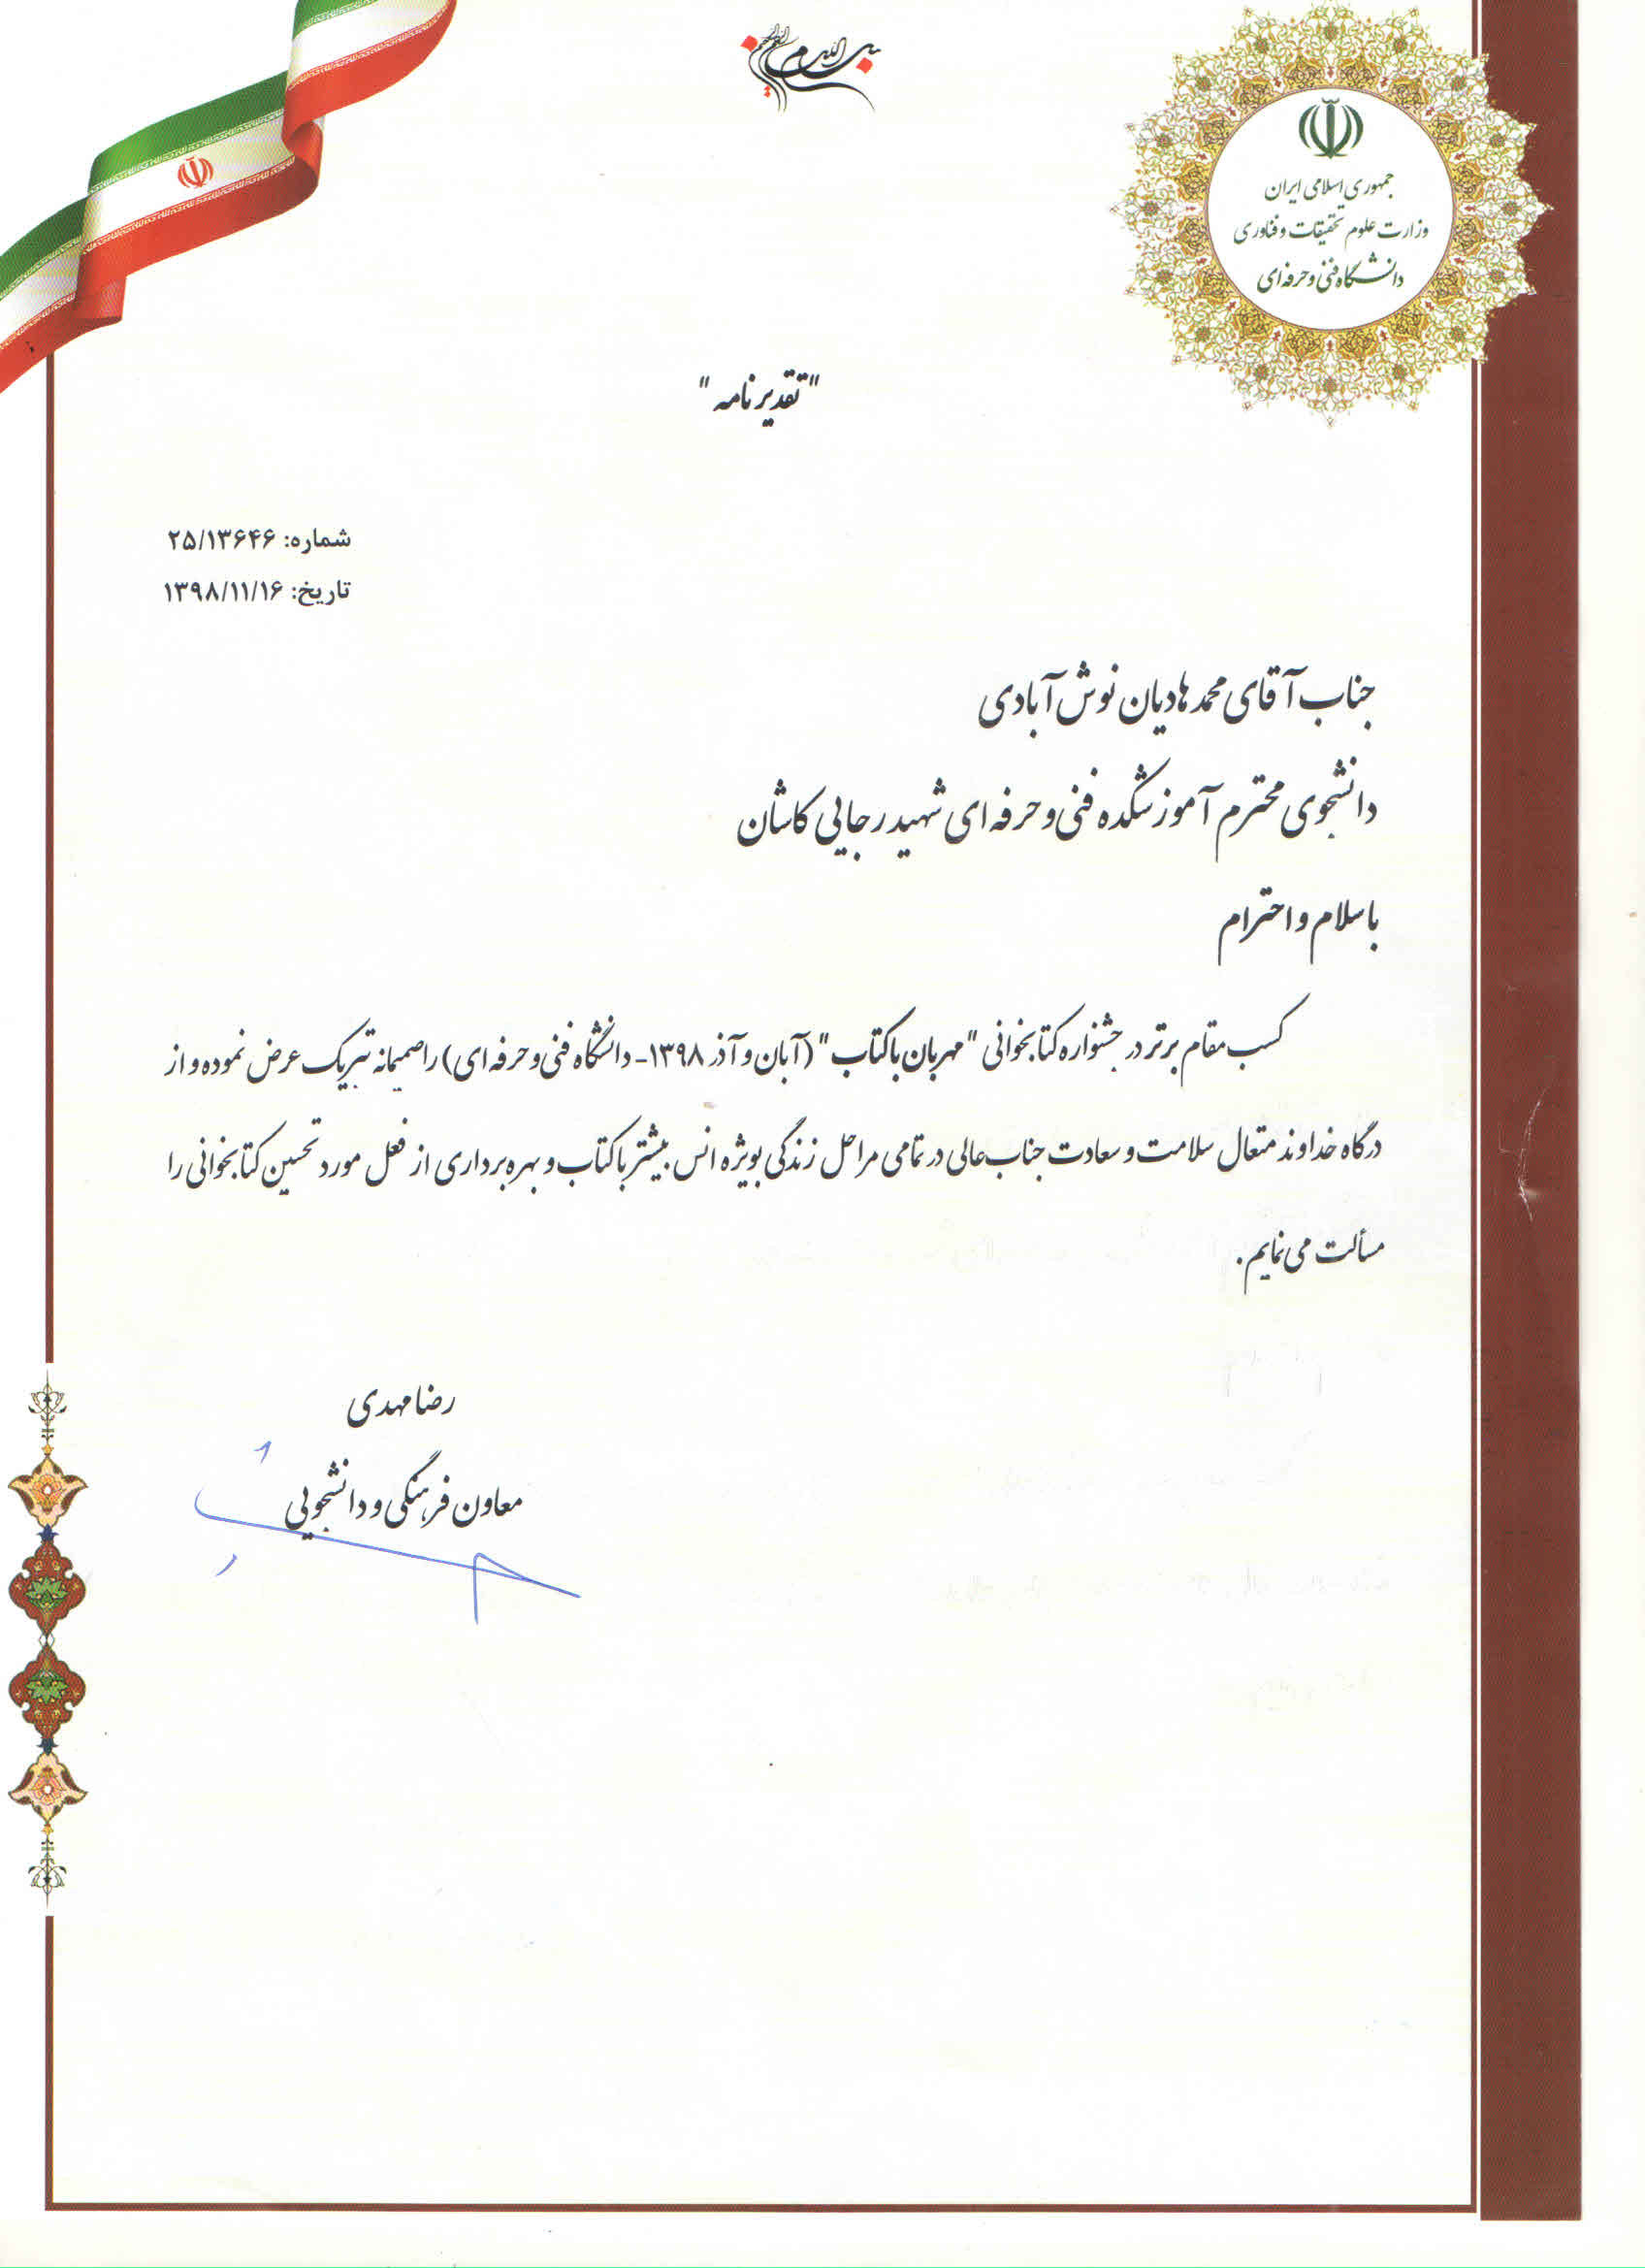 بسم الله الرحمن الرحیم
جمهوری اسلامی ایران
وزارت علوم تحقیقات و فناوری
دانشگاه فنی و حرفه ای
"تقدیرنامه"
شماره: ۲۵/۱۳۶۴۶
تاریخ: ۱۳۹۸/۱۱/۱۶
جناب آقای محمد هادیان نوش آبادی
دانشجوی محترم آموزشکده فنی و حرفه ای شهید رجایی کاشان
با سلام و احترام
کسب مقام برتر در جشنواره کتابخوانی "مهربان با کتاب" (آبان و آذر ۱۳۹۸- دانشگاه فنی و حرفه ای) را صمیمانه تبریک عرض نموده و از
درگاه خداوند متعال سلامت و سعادت جناب عالی در تمامی مراحل زندگی بویژه انس بیشتر با کتاب و بهره برداری از فعل مورد تحسین کتابخوانی را
مسألت می نمایم.
رضا مهدی
معاون فرهنگی و دانشجویی